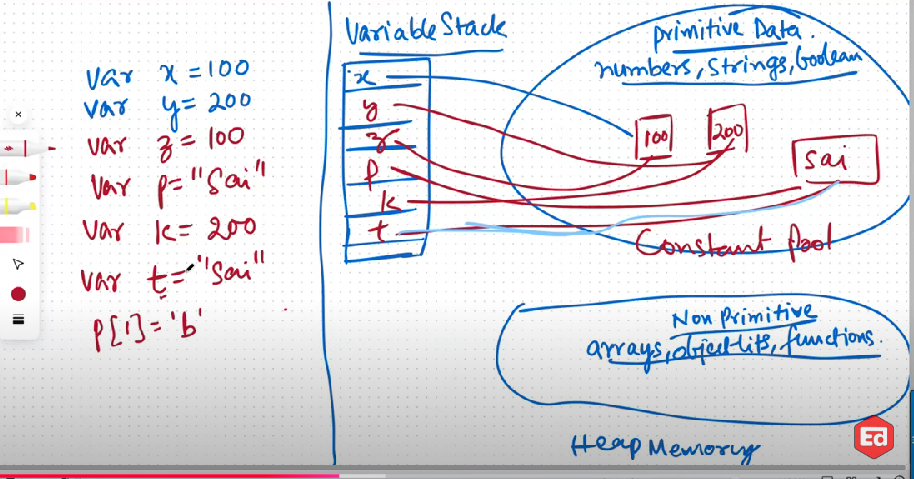 var x = 100
var y = 200
var z = 100
var p = "Sai"
var k = 200
var t = "Sai"
p[1] = 'b'
Variable Stack
x
y
z
p
k
t
primitive Data.
numbers, Strings, boolean
100
200
sai
Constant Pool
Non Primitive
arrays, object lits, functions.
Heap Memory
Ed